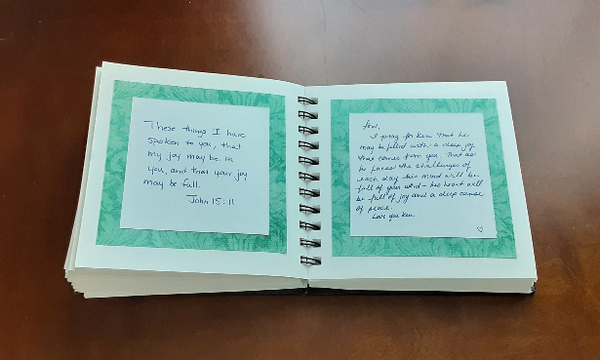 These things I have
spoken to you, that
my joy may be in
you, and that your joy
may be full.
John 15:11
I pray for Ken that he
may be filled with a deep joy
that comes from you. That as
he faces the challenges of
each day his mind will be
full of your word - his heart will
be full of joy and a deep sense
of peace.
Love you Ken